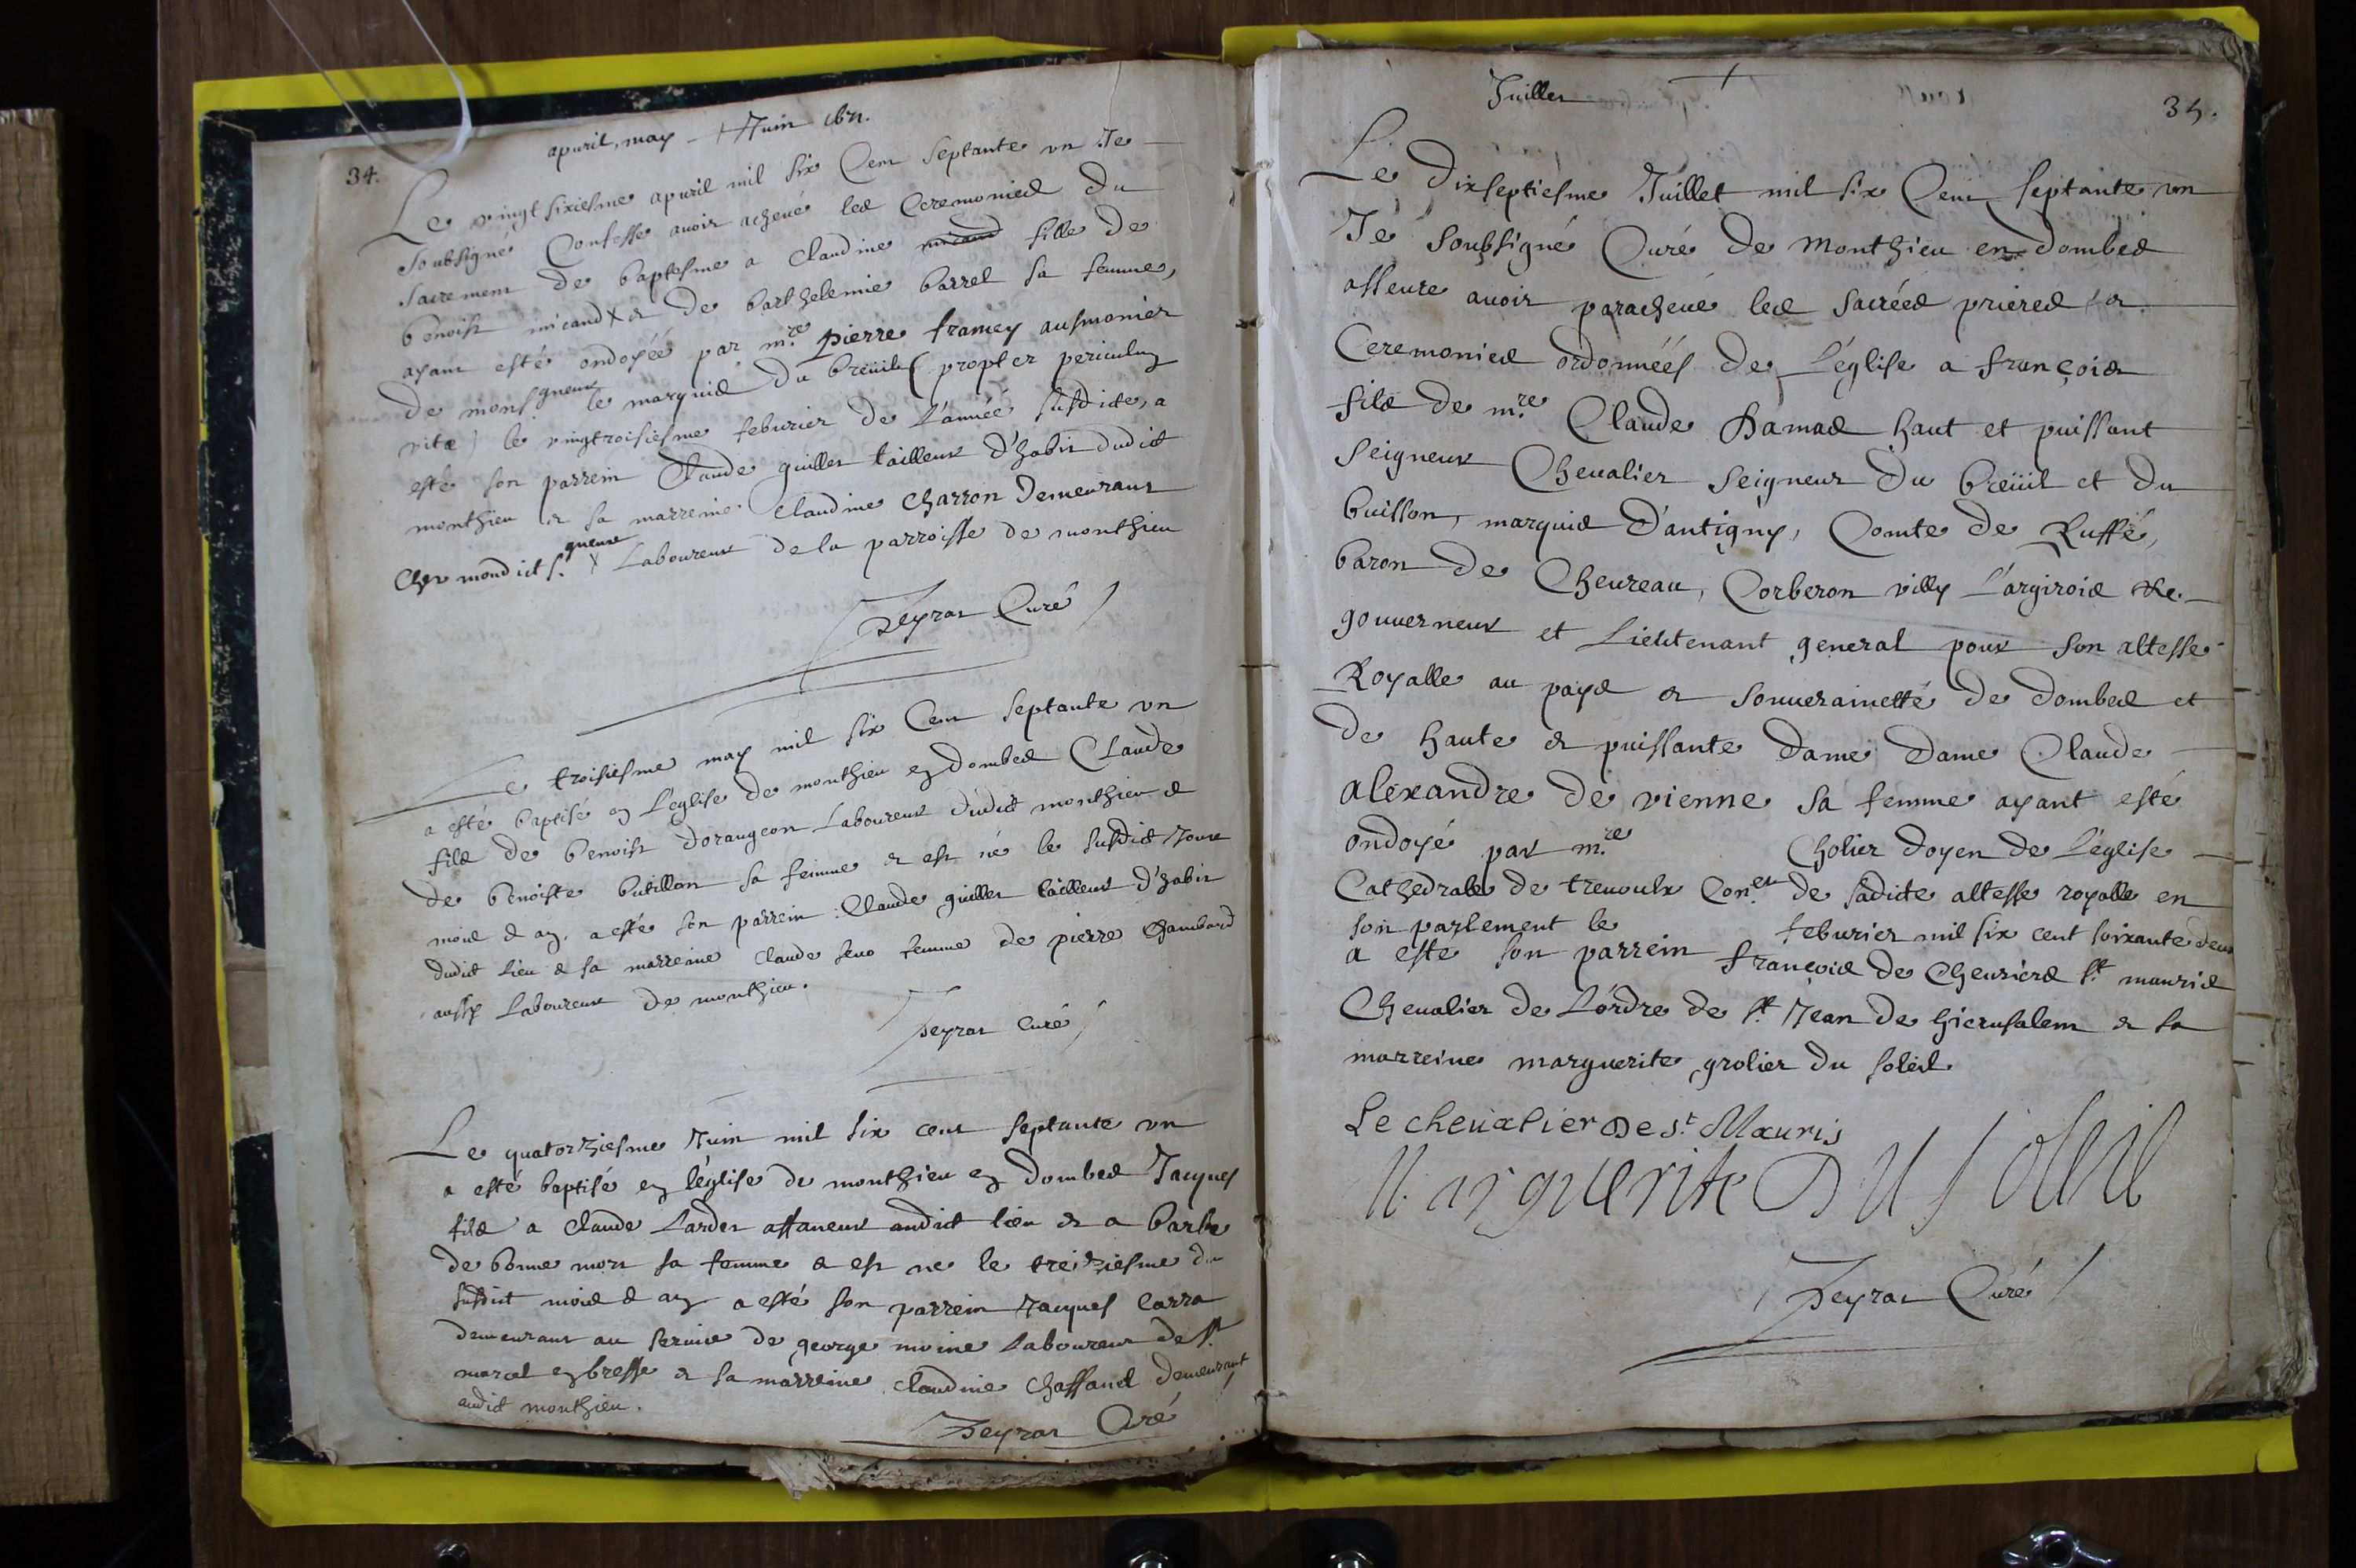 34.
apuril, may - + Juin 1671.
Le vingt sixiesme apuril mil six Cent septante vn Je
soubsigné Confesse auoir acheué les Ceremonies du
Sacrement de baptesme a Claudine micand fille de
benoist micand X et de barthelemie barret sa femme,
ayant esté ondoyée par m.re pierre framey ausmonier
de monsgneur le marquis du breüil (propter periculum
vitæ) le vingtroisiesme feburier de l'année susdicte, a
esté son parrein Claude guillet tailleur d'habit dudict
monthieu et sa marreine Claudine Charron demeurant
Chez mondict S.gneur X Laboureur de la parroisse de monthieu
Peyrat Curé
Le troisiesme may mil six Cent septante vn
a esté baptisé en l'eglise de monthieu en dombes Claude
fils de benoist dorangeon Laboureur dudict monthieu &
de benoiste butillon sa femme et est né le susdict Jour
mois & an, a esté son parrein Claude guillet tailleur d'habit
dudict lieu & sa marreine Claude seuo femme de pierre Chambard
aussy Laboureur de monthieu.
Peyrat Curé
Le quatorziesme Juin mil six cent septante vn
a esté baptisé en l'église de monthieu en dombes Jacques
fils a Claude Lardet affaneur audict lieu et a barbe
de bonne mort sa femme & est né le treiziesme du
susdict mois & an a esté son parrein Jacques Carra
demeurant au seruice de george moine Laboureur de st
marcel en bresse et sa marreine Claudine Chassaud demeurant
audict monthieu.
Peyrat Curé
Juillet +
35.
Le dixseptiesme Juillet mil six Cent septante vn
Je soubsigné Curé de monthieu en dombes
asseure auoir paracheué les sacrées prieres et
Ceremonies ordonnées de L'église a françois
fils de m.re Claude Damas haut et puissant
seigneur Cheualier seigneur du breüil et du
buisson, marquis d'antigny, Comte de Ruffé,
baron de Cheureau, Corberon villy L'argirois &c.
gouuerneur et Lieutenant general pour son altesse
Royalle au pays et souuerainetté de dombes et
de haute et puissante dame dame Claude
alexandre de vienne sa femme ayant esté
ondoyé par m.re Cholier doyen de L'église
Cathedrale de treuoulx Con.er de sadicte altesse royalle en
son parlement le feburier mil six cent soixante deux
a esté son parrein françois de Cheuriers st mauris
Cheualier de L'ordre de st Jean de hierusalem et sa
marreine marguerite grolier du soleil
Le cheualier De st. Mauris
Marguerite DU soleil
Peyrat Curé